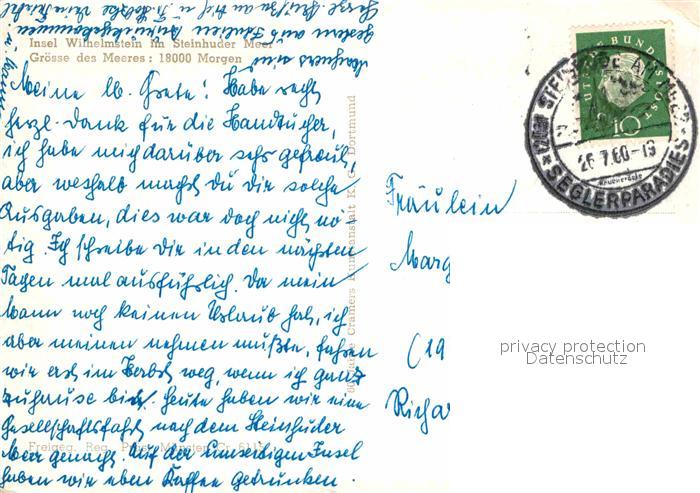 Insel Wilhelmstein im Steinhuder Meer
Grösse des Meeres: 18000 Morgen
Meine lb. Grete! Habe recht
herzl. Dank für die Handtücher,
ich habe mich darüber sehr gefreut,
aber weshalb machst du dir solche
Ausgaben, dies war doch nicht nö
tig. Ich schreibe dir in den nächsten
Tagen mal ausführlich. Da mein
Mann noch keinen Urlaub hat, ich
aber meinen nehmen mußte, fahren
wir erst im Herbst weg, wenn ich ganz
zuhause bin. Heute haben wir eine
Gesellschaftsfahrt nach dem Steinhuder
Meer gemacht. Auf der umseitigen Insel
haben wir eben Kaffee getrunken.
Wagners sind
gestern aus zurückgekommen.
Herzl. Grüße an
Cramers Kunstanstalt K. G., Dortmund
Freigeg. Reg. Präs. Münster Cr 6115
DEUTSCHE BUNDESPOST
10
STEINHUDE AM MEER
26.7.60-19
SEGLERPARADIES
Fräulein
Marg
(19
Richar
privacy protection
Datenschutz